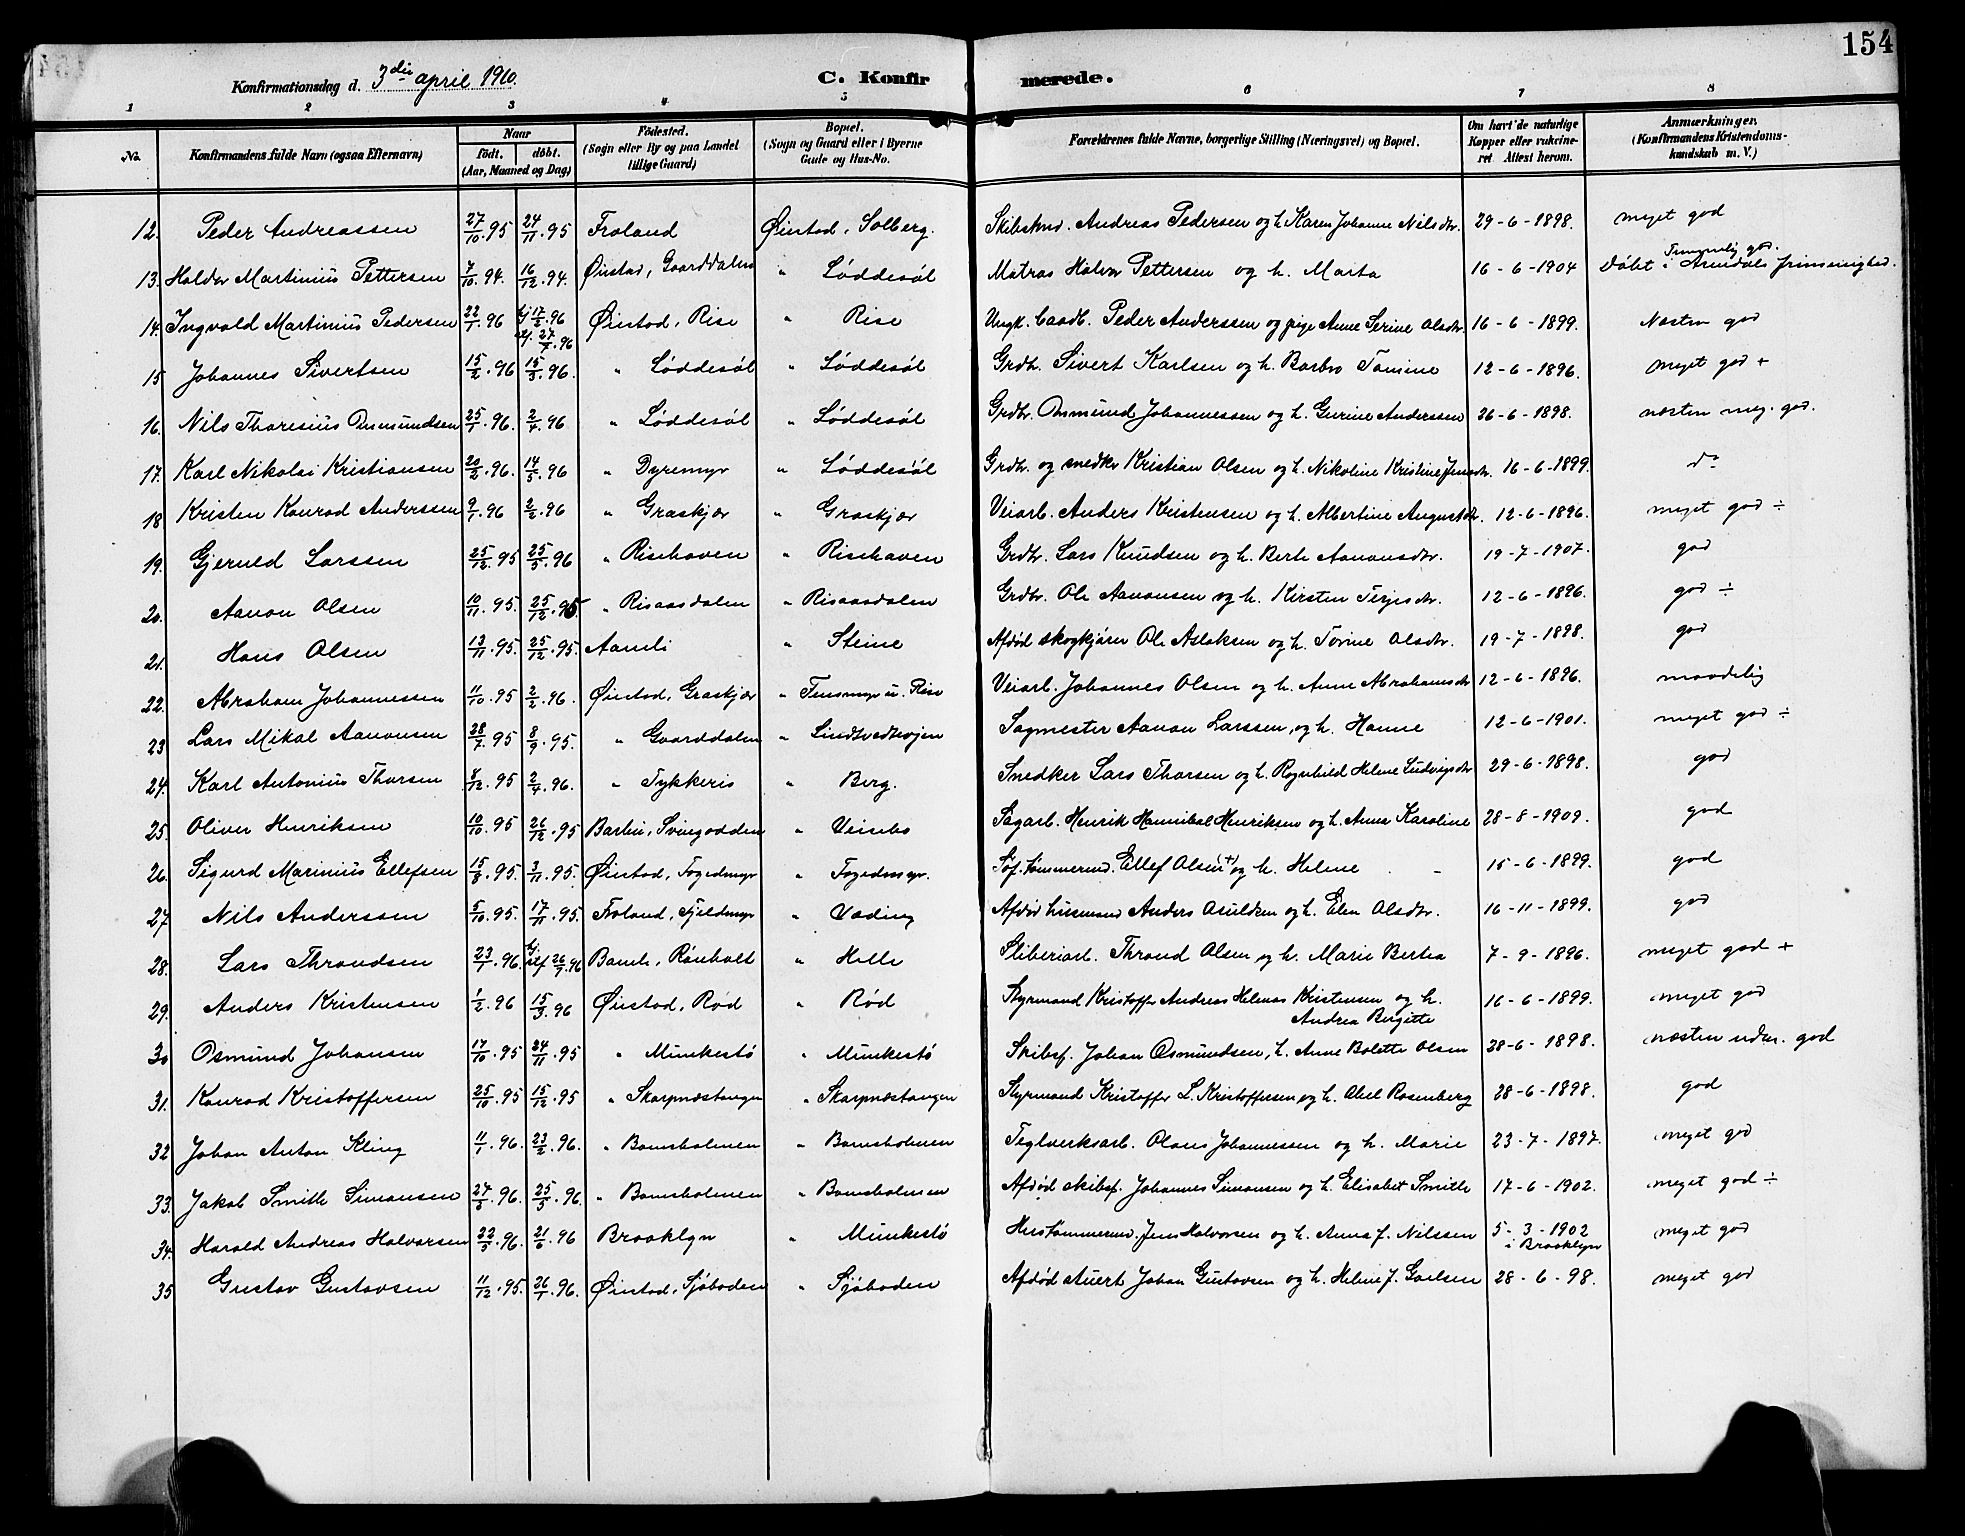 154
Konfirmationsdag d. 3die april 1910. C. Konfirmerede.
1 2 3 4 5 6 7 8
No. Konfirmandens fulde Navn (ogsaa Efternavn) Naar født. døbt. (Aar, Maaned og Dag) Fødested. (Sogn eller By og paa Landet tillige Gaard) Bopæl. (Sogn og Gaard eller i Byerne Gade og Hus-No. Forældrenes fulde Navne, borgerlige Stilling (Næringsvei) og Bopæl. Om havt de naturlige Kopper eller vakcineret. Attest herom. Anmærkninger. (Konfirmandens Kristendomskundskab m. V.)
12. Peder Andreassen 27/10.95 24/11.95 Froland Øiestad, Solberg. Skibstmd. Andreas Pedersen og h. Karen Johanne Nilsdtr. 29-6-1898. meget god
13. Halvor Martinius Pettersen 7/10.94. 16/12.94. Øiestad, Gaarddalen " Løddesøl Matros Halvor Pettersen og h. Marta 16-6-1904 Temmelig god. Døbt i Arendals frimenighed.
14. Ingvald Martinius Pedersen 22/1.96 hj 17/2.96 27/7.96 Øiestad, Rise " Rise Ungk. Peder Anderssen og pige Anne Serine Olsdtr. 16-6-1899. Næsten god
15 Johannes Sivertsen 15/2.96 15/3.96. " Løddesøl " Løddesøl Grdbr. Sivert Karlsen og h. Barbro Tomine 12-6-1896. meget god +
16. Nils Thoresius Osmundsen 25/1.96. 2/4.96 " Løddesøl " Løddesøl Grdbr. Osmund Johannessen og h. Gurine Anderssen 26-6-1898. næsten meg. god.
17. Karl Nikolai Kristiansen 20/2.96. 14/5.96 " Dyremyr " Løddesøl Grdbr. og snedker Kristian Olsen og h. Nikoline Kristine Jensdtr. 16-6-1899. do
18 Kristen Konrad Anderssen 9/1.96 2/2.96 " Graskjær " Graskjær Veiarb. Anders Kristensen og h. Albertine Augustdtr. 12-6-1896. meget god ÷
19. Gjeruld Larssen 25/12.95 25/5.96 " Risehaven " Risehaven Grdbr. Lars Knudsen og h. Berte Aanonsdtr. 19-7-1907. god
20. Aanon Olsen 10/11.95. 25/12.95 " Risaasdalen " Risaasdalen Grdbr. Ole Aanonsen og h. Kirsten Terjesdtr. 12-6-1896. god ÷
21. Hans Olsen 13/11.95. 25/12.95. Aamli " Steine Afdød skogkjører Ole Aslaksen og h. Torine Olsdtr. 19-7-1898. god
22. Abraham Johannessen 11/10.95 2/2.96. Øiestad, Graskjær " Tinsmyr u. Rise Veiarb. Johannes Olsen og h. Anne Abrahamsdtr 12-6-1896. maadelig
23 Lars Mikal Aanonsen 28/7.95 8/9.95. " Gaarddalen " Lindtvedtveien Sagmester Aanon Larssen, og h. Hanne 12-6-1901. meget god ÷
24. Karl Antonius Thorsen 8/12.95 2/4.96. " Tykkeris " Berg. Snedker Lars Thorsen og h. Ragnhild Helene Ludvigsdtr 29-6-1898. god
25. Oliver Henriksen 10/10.95 26/12.95 Barbu, Svinodden " Veimbo Sagarb. Henrik Hannibal Henriksen og h. Anna Karoline 28-8-1909. god
26. Sigurd Marinius Ellefsen 15/8.95. 3/11.95. Øiestad, Fogedmyr " Fogedmyr. Søf. tømmermd. Ellef Olsen (+) og h. Helene 15-6-1899. god
27. Nils Anderssen 5/10.95. 17/11.95. Froland, Fjeldmyr " Vading Afdød husmand Anders Osuldsen og h. Elen Olsdtr. 16-11-1899. god
28. Lars Throndsen 23/1.96. hj 26/7.96 Bamle, Rønholt " Helle Sliberiarb. Thrond Olsen og h. Marie Bertea 7-9-1896. meget god +
29. Anders Kristensen 1/2.96 15/3.96 Øiestad, Rød " Rød Styrmand Kristoffer Andreas Helmas Kristensen og h. Andrea Birgitte 16-6-1899. meget god
30 Osmund Johansen 17/10.95 24/11.95 " Munkestø " Munkestø Skibsf. Johan Osmundsen, h. Anne Bolette Olsen 28-6-1898. næsten udm. god
31. Konrad Kristoffersen 25/10.95 15/12.95 " Skarpnæstangen " Skarpnæstangen Styrmand Kristoffer L. Kristoffersen og h. Abel Rosenberg 28-6-1898. god
32 Johan Anton Kling 11/1.96. 23/2.96. " Bomsholmen " Bomsholmen Teglverksarb. Olaus Johannessen og h. Marie 23-7-1897. meget god
33. Jakob Smith Simonsen 27/3.96. 25/5.96. " Bomsholmen " Bomsholmen Afdød skibsf. Johannes Simonsen og h. Elisabet Smith 17-6-1902. meget god ÷
34. Harald Andreas Halvorsen 22/5.96. 21/6.96 Brooklyn " Munkestø Hustømmermd. Jens Halvorsen og h. Anna J. Nilssen 5-3-1902 i Brooklyn meget god
35 Gustav Gustavsen 11/12.95. 26/1.96. Øiestad, Sjøboden " Sjøboden Afdød stuert Johan Gustavsen og h. Helene J. Gaelsen 28-6-98. meget god